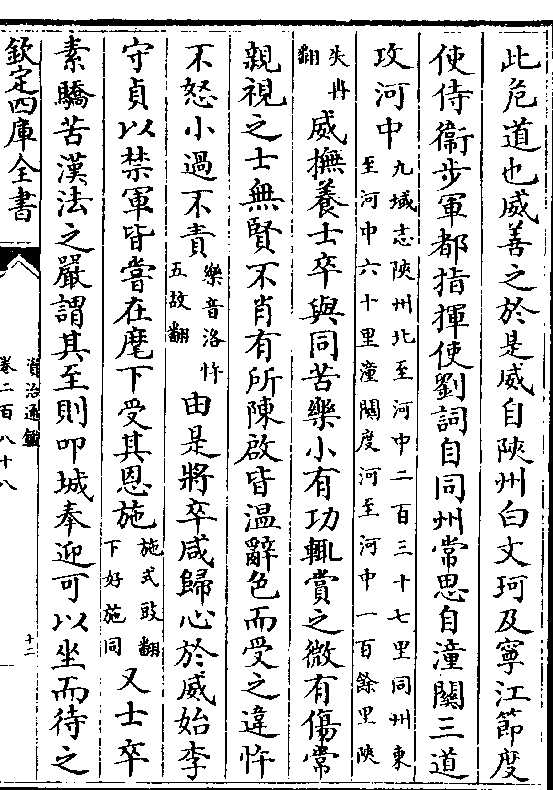 此危道也威善之於是威自陝州白文珂及寧江節度
使侍衞步軍都指揮使劉詞自同州常思自潼關三道
攻河中九域志陝州北至河中二百三十七里同州東
至河中六十里潼關度河至河中一百餘里陝
失冉
翻威撫養士卒與同苦樂小有功輒賞之微有傷常
親視之士無賢不肖有所陳啟皆温辭色而受之違忤
不怒小過不責樂音洛忤
五故翻由是將卒咸歸心於威始李
守貞以禁軍皆嘗在麾下受其恩施施式豉翻
下好施同又士卒
素驕苦漢法之嚴謂其至則叩城奉迎可以坐而待之
欽定四庫全書
資治通鑑
卷二百八十八
十二